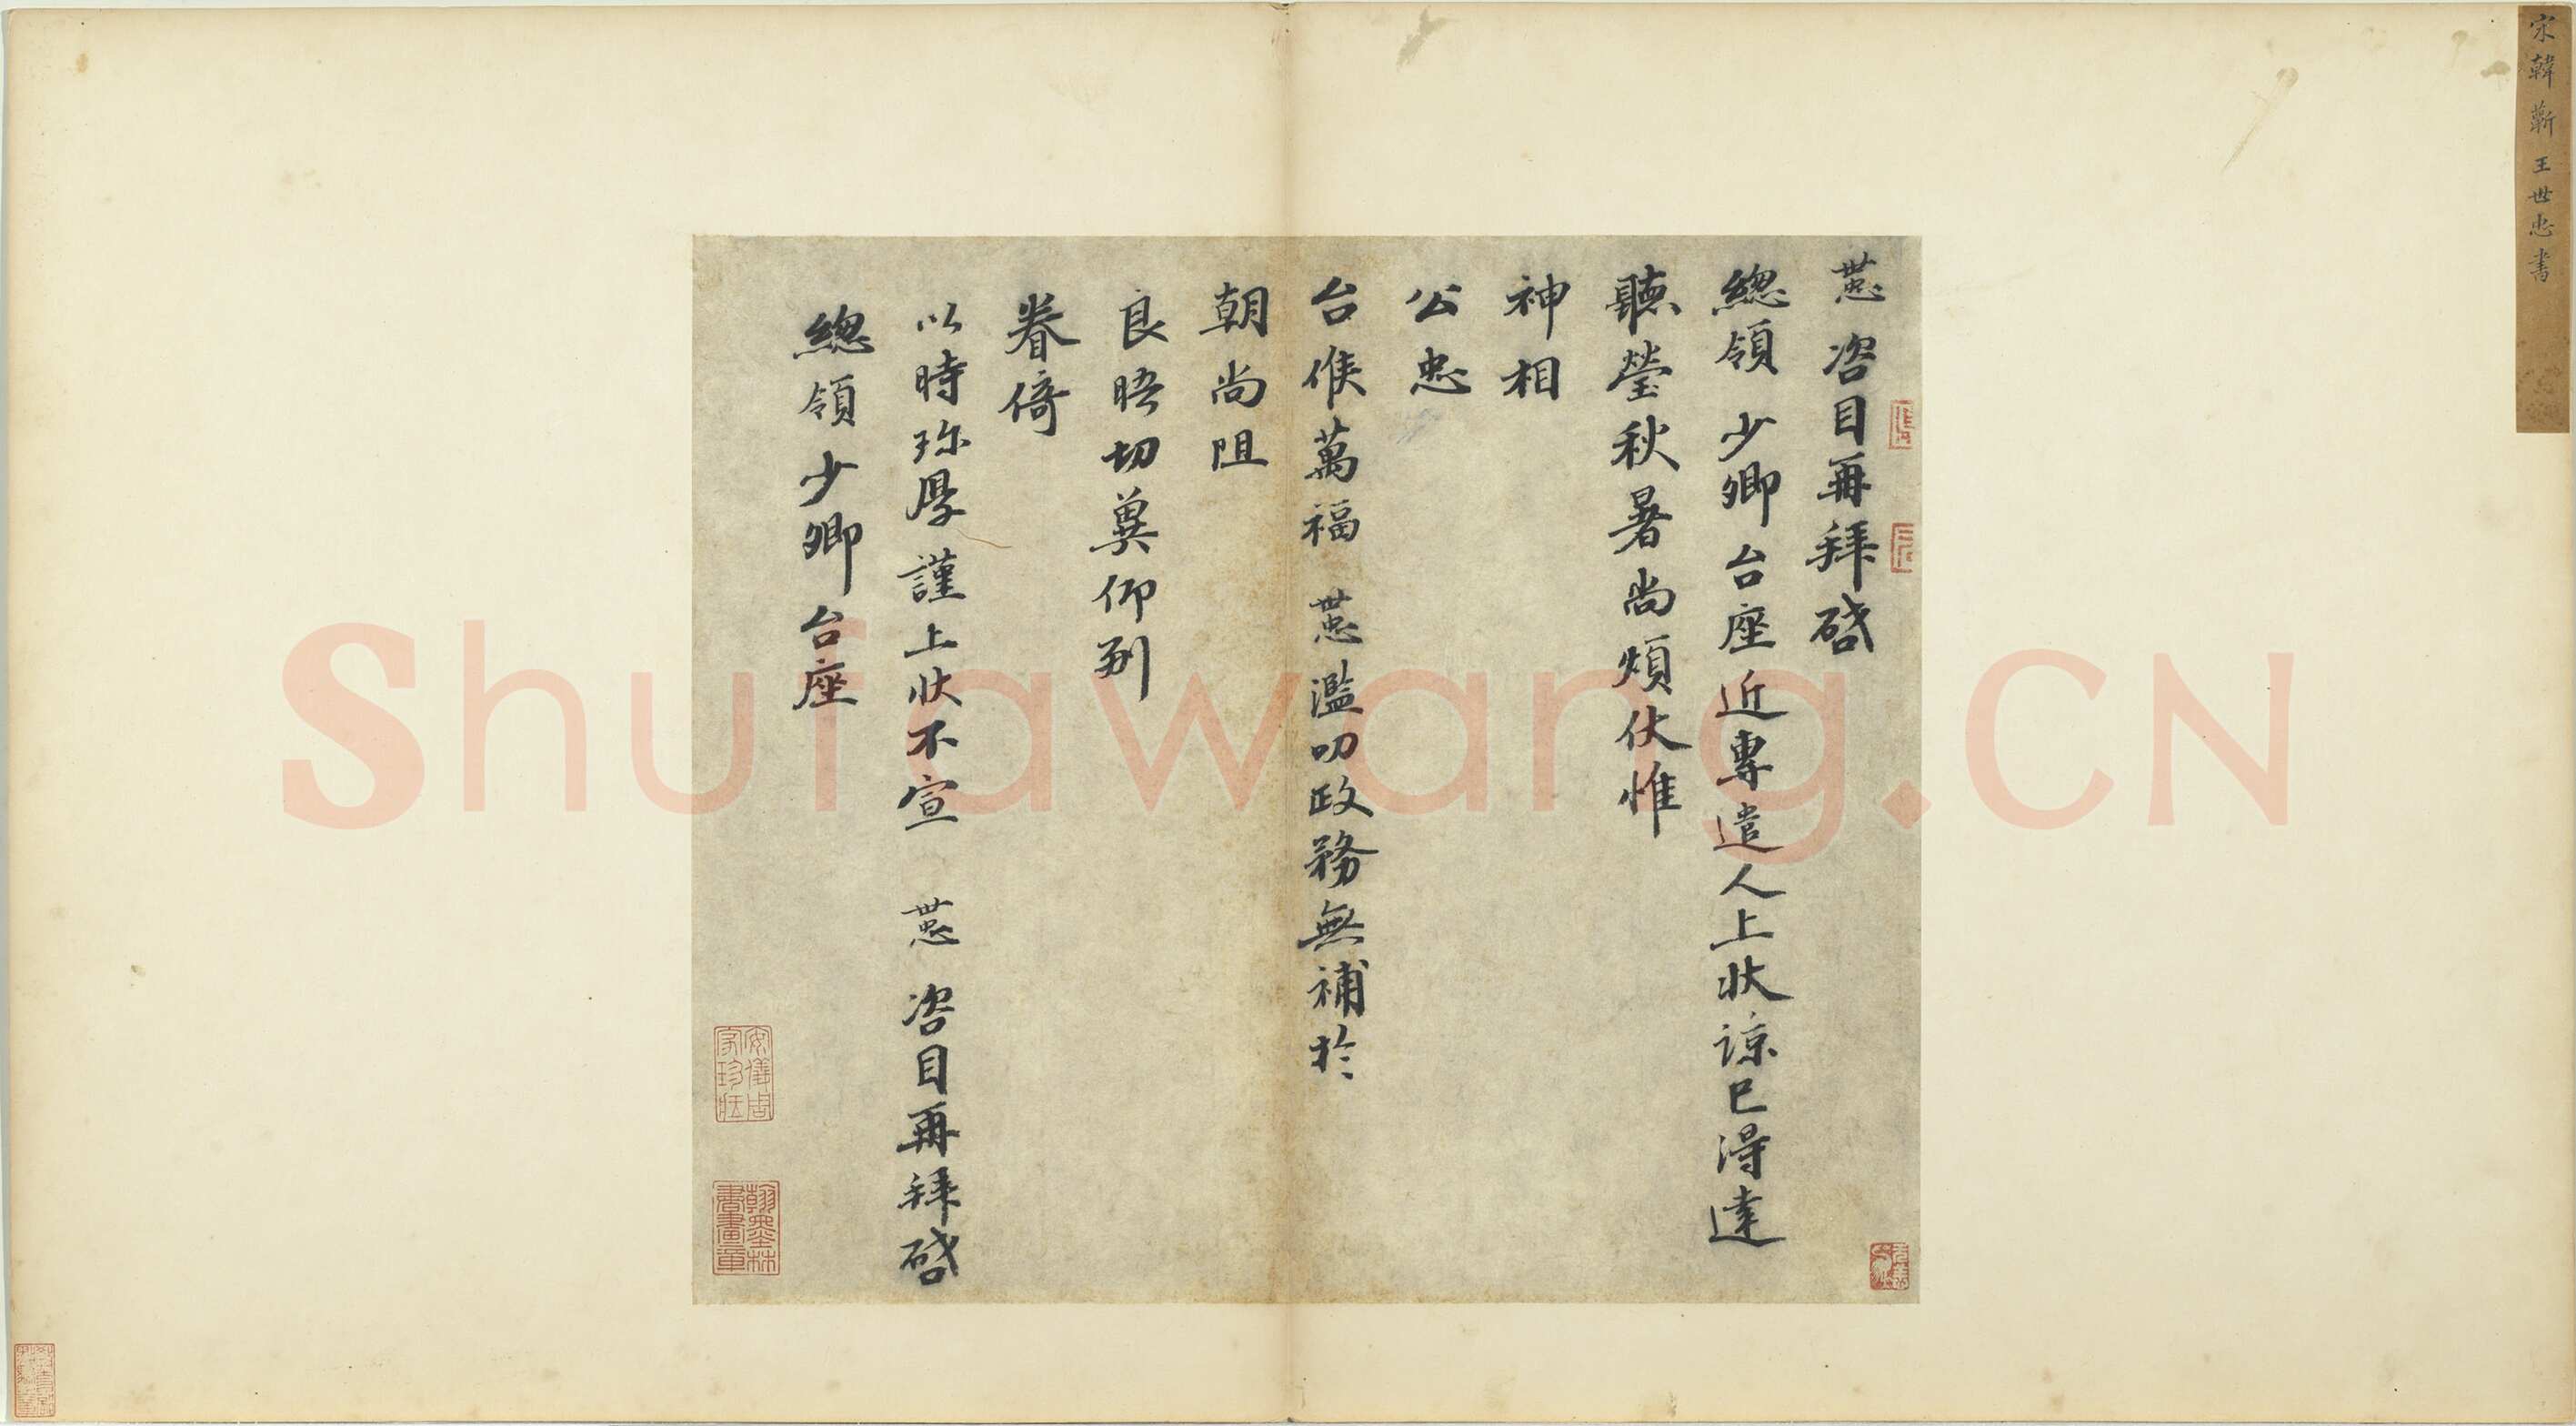 宋韓蘄王世忠書
世忠咨目再拜啓
總領少卿台座近專遣人上狀諒已得達
聽瑩秋暑尚煩伏惟
神相
公忠
台候萬福世忠濫叨政務無補於
朝尚阻
良晤切冀仰副
眷倚
以時珎厚謹上狀不宣世忠咨目再拜啓
總領少卿台座
安儀周家珍藏
翰墨林書畫章
Shufawang.CN